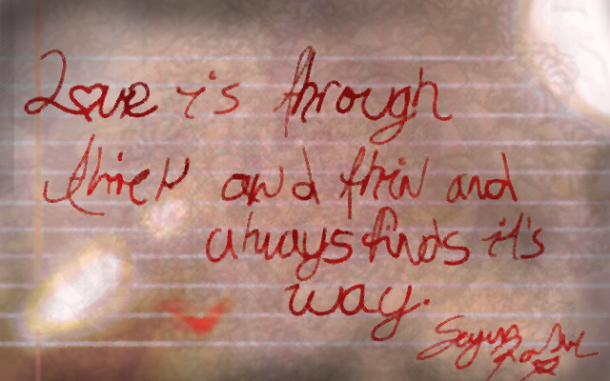 Love is through
thick and thin and
always finds it's
way.